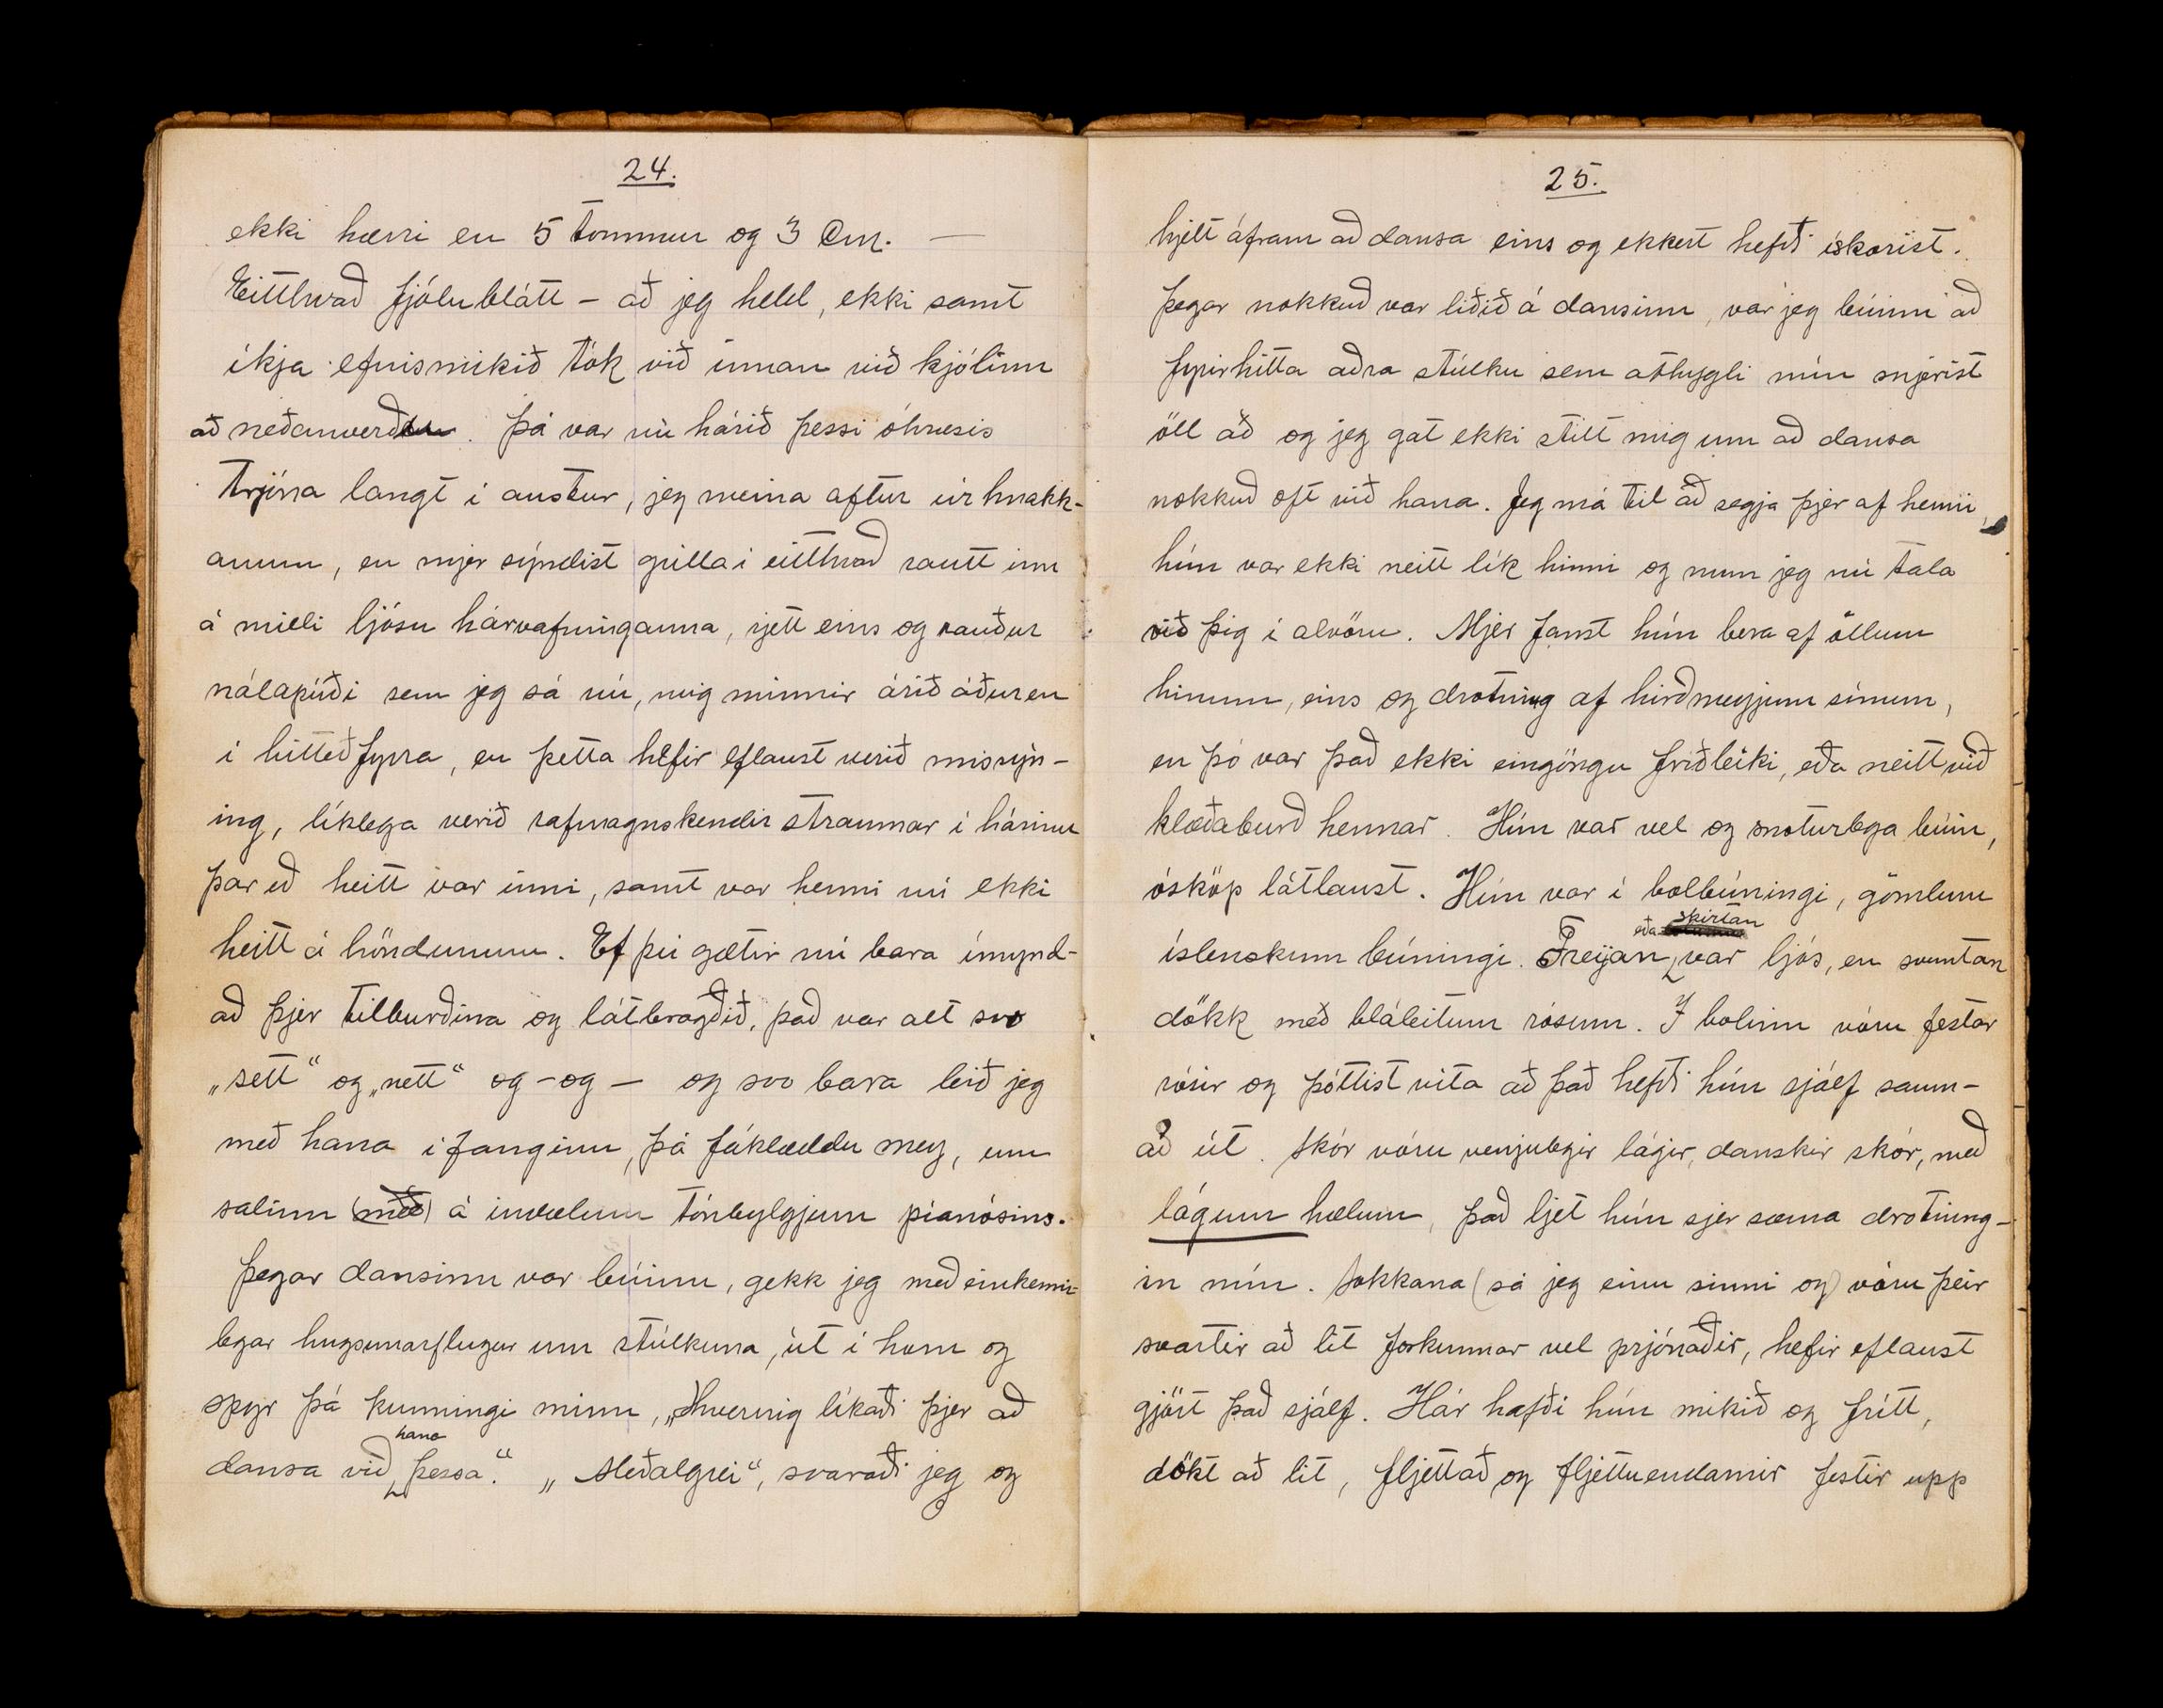 24.
ekki hærri en 5 tommur og 3 Cm. —
Eitthvað fjólublátt - að jeg held, ekki samt
íkja efnismikið tók við innan við kjólinn
að neðanverðu. Þá var nú hárið þessi óhræsis
trjóna langt í austur, jeg meina aftur úr hnakk-
anum, en mjer sýndist grilla í eitthvað rautt inn
á milli ljósu hárvafninganna, rjett eins og rauður
nálapúði sem jeg sá nú, mig minnir árið áður en
í hitteðfyrra, en þetta hefir eflaust verið missýn-
ing, líklega verið rafmagnskendir straumar í hárinu
þar eð heitt var inni, samt var henni nú ekki
heitt á höndunum. Ef þú gætir nú bara ímynd-
að þjer tilburðina og látbragðið, það var alt svo
„sett“ og „nett“ og - og — og svo bara leið jeg
með hana í fanginu, þá fáklæddu mey, um
salinn (með) á indælum tónbylgjum pianósins.
Þegar dansinn var búinn, gekk jeg með einkenni-
legar hugsunarflugur um stúlkuna, út í horn og
spyr þá kunningi minn, „Hvernig líkaði þjer að
hana
dansa við þessa“. „Meðalgrei“, svaraði jeg og
25.
hjelt áfram að dansa eins og ekkert hefði ískorist.
Þegar nokkuð var liðið á dansinn, var jeg búinn að
fyrirhitta aðra stúlku sem athygli mín snjerist
öll að og jeg gat ekki stilt mig um að dansa
nokkuð oft við hana. Jeg má til að segja þjer af henni,
hún var ekki neitt lík hinni og mun jeg nú tala
við þig í alvöru. Mjer fanst hún bera af öllum
hinum, eins og drotning af hirðmeyjum sínum,
en þó var það ekki eingöngu fríðleiki, eða neitt við
klæðaburð hennar. Hún var vel og snoturlega búin,
ósköp látlaust. Hún var í bolbúningi, gömlum
eða skirtan
íslenskum búningi. Treyjan var ljós, en svuntan
dökk með bláleitum rósum. Í bolinn vóru festar
rósir og þóttist vita að það hefði hún sjálf saum-
að út. Skór vóru venjulegir lágir, danskir skór, með
lágum hælum, það ljet hún sjer sæma drotning-
in mín. Sokkana (sá jeg einu sinni og) vóru þeir
svartir að lit forkunnar vel prjónaðir, hefir eflaust
gjört það sjálf. Hár hafði hún mikið og frítt,
dökt að lit, fljettað og fljettuendarnir festir upp